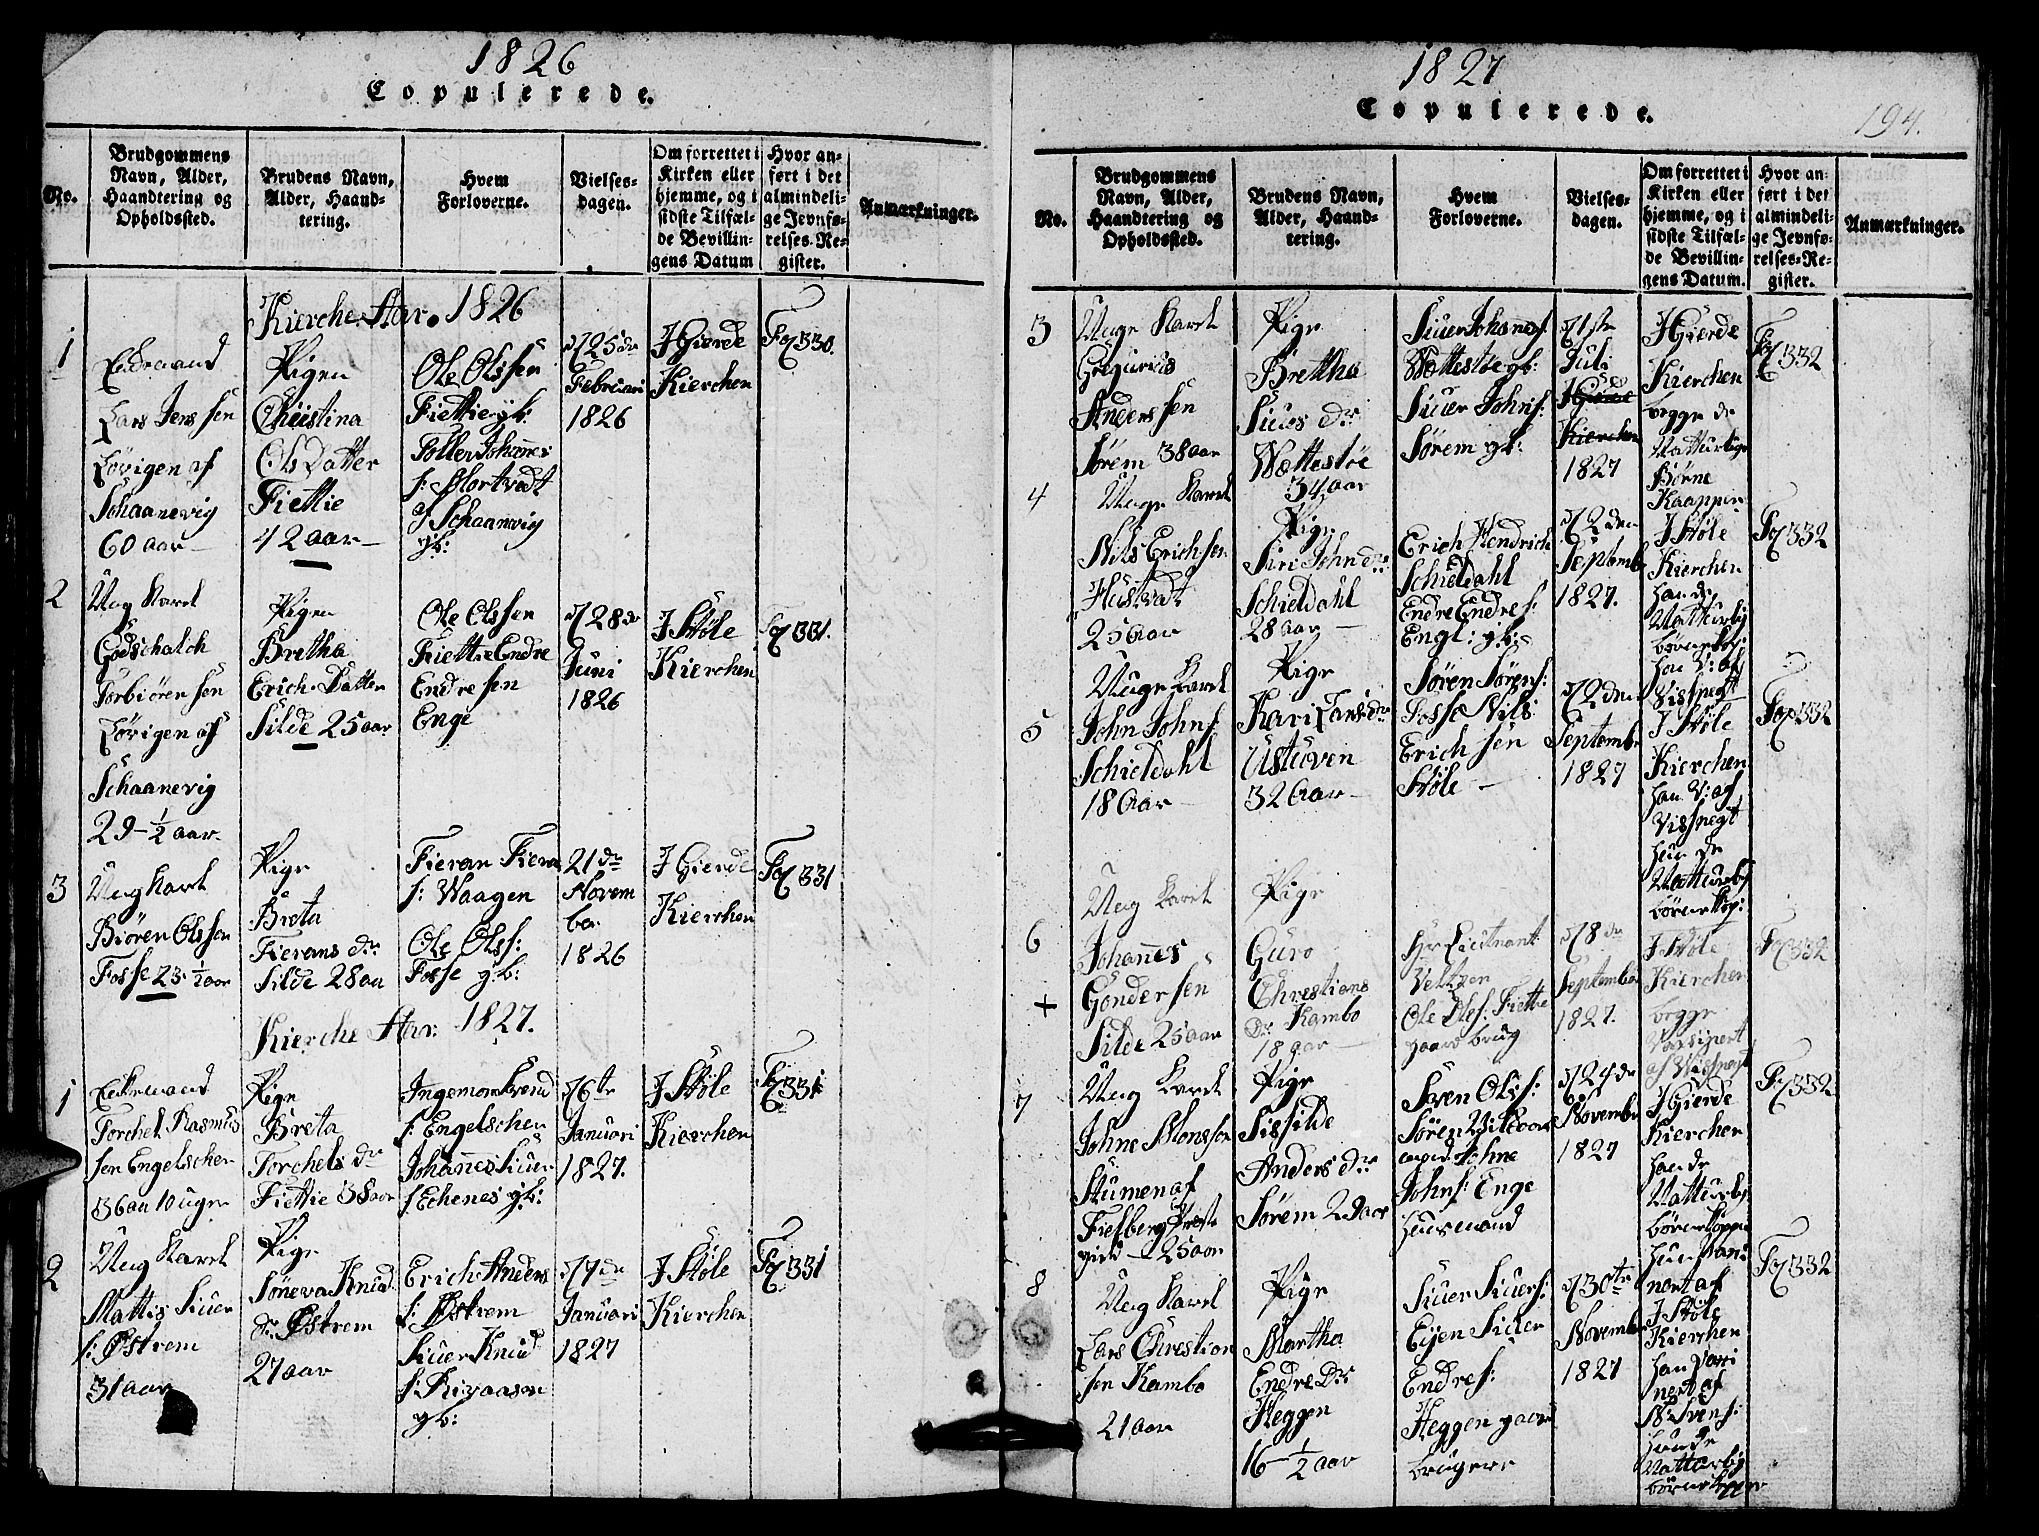 1826
Copulerede.
No.
Brudgommens
Navn, Alder,
Haandtering og
Opholdssted.
Brudens Navn,
Alder, Haand-
tering.
Hvem
Forloverne.
Vielses-
dagen.
Om forrettet i
Kirken eller
hjemme, og i
sidste Tilfæl-
de Bevillin-
gens Datum
Hvor an-
ført i det
almindeli-
ge Jevnfø-
relses-Re-
gister.
Anmærkninger.
Kierche Aar. 1826
1
Enkemand
Lars Jenssen
af
Schaanevig
60 aar
Pigen
Christina
Ols Datter
Fiettie
42 aar
Ole Olssen
Fiettie gb:
Johannes
s: Mortvedt
Schaanevig
gb:
25 de
Februari
1826
J Gierde
Kierchen
Fol 330.
2
Ung Karl
Godschalch
Torbiørensen
af
Schaanevig
29-½ aar
Pigen
Bretha
Erich Datter
Silde 25 aar
Ole Olssen
Fiettie Endre
Endresen
Enge
28 de
Juni
1826
J Støle
Kierchen
Fol 331.
3
Ung Karl
Biøren Olssen
Fosse 23-½ aar
Pige
Breta
Fierans dr
Silde 28 aa
Fieran Fiera
s: Waagen
Ole Olss:
Fosse gb:
21 de
Novem
ber
1826
J Gierde
Kierchen
Fol 331
Kierche Aar: 1827.
1
Enkemand
Torchel Rasmus
sen Engelschen
36 aa 10 uger
Pige
Breta
Torchels dr
Fiettie 38 aar
Ingemom Svend
s: Engelschen
Johannes Siver
s: Echenes gb:
6te
Januari
1827.
J Støle
Kierchen
Fol 331
2
Ung Karl
Mattis Siver
s: Østrem
31 aar
Pige
Søneva Knud
dr Østrem
27 aar
Erich Anders
s: Østrem
Siver Knud
s:
gb:
7 de
Januari
1827
J Støle
Kierchen
Fol 331
1827
Copulerede.
194.
No.
Brudgommens
Navn, Alder,
Haandtering og
Opholdssted.
Brudens Navn,
Alder, Haand-
tering.
Hvem
Forloverne.
Vielses-
dagen.
Om forrettet i
Kirken eller
hjemme, og i
sidste Tilfæl-
de Bevillin-
gens Datum.
Hvor an-
ført i det
almindeli-
ge Jevnfø-
relses-Re-
gister.
Anmærkninger.
3
Unge Karl
Gregurius
Anderssen
Sørem 38 aar
Pige
Brettha
Sivers dr
Wattestøe
34 aar
Siver Johanes
Wattestøe gb:
Siver Johns:
Sørem gb:
1ste
Juli
J Gierde
Kierchen
1827
J Gierde
Kierchen
begge de
Natturlige
Børne
Kaapper
Fol 332
4
Unge Karl
Nils Erichsen
Hustvedt
25 aar
Pige
Siri John dr
Schieldahl
28 aar
Erich Hendrich
Schieldahl
Endre Endres:
Eng: gb:
2 den
Septembe
1827.
J Støle
Kierchen
han de
Natturlig
hun V: af
Vissnegt
Fol 332
5
Unge Karl
John Johns:
Schieldahl
18 aar
Pige
Kari Lars dr
Ustuven
32 aar
Søren Sørens:
Fosse Nils
Erichsen
Støle
2 den
Septembr
1827
J Støle
Kierchen
han V: af
Vissnegt
hun de
Natturlig
Fol 332
6
+
Ung Karl
Johannes
Gondersen
Silde 25 aar
Pige
Guro
Chrestians
dr Kambo
18 aar
Hr Lieutnant
Veltzen
Ole Olss: Fiette
gaard brug
8 de
September
1827.
J Støle
Kierchen
begge
af Wissnegt
Fol 332
7
Ung Karl
Johne Monssen
af
Fielberg Preste
gield 25 aar
Pige
Sissilde
Anders dr
Sørem 29 aar
Sven Olss:
Sørem
Johne
Johns: Enge
Huusmand
24 de
Novembr
1827
J Gierde
Kierchen
han de
Natturlig
hun
af
Fol 332
8
Ung Karl
Lars Chrestian
sen Kambo
21 aar
Pige
Martha
Endre Dr
Heggen
16-½ aar
Siver Sivers:
Eyen Siver
Endres:
Heggen gaar
brugere
30te
Novembr
1827
J Støle
Kierchen
han
af
hun de
Natturlig
Fol 332